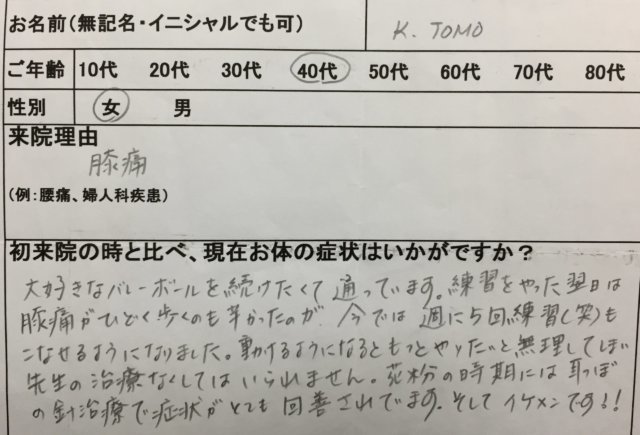 お名前(無記名・イニシャルでも可) K. TOMO
ご年齢 10代 20代 30代 40代 50代 60代 70代 80代
性別 女 男
来院理由
膝痛
(例:腰痛、婦人科疾患)
初来院の時と比べ、現在お体の症状はいかがですか?
大好きなバレーボールを続けたくて通っています。練習をやった翌日は
膝痛がひどく歩くのも辛かったのが 今では 週に5回練習(笑)も
こなせるようになりました。動けるようになるともっとやりたいと無理してしまい
先生の治療なくしてはいられません。花粉の時期には耳つぼ
の針治療で症状がとても 回善されてます。そして イケメンです!!